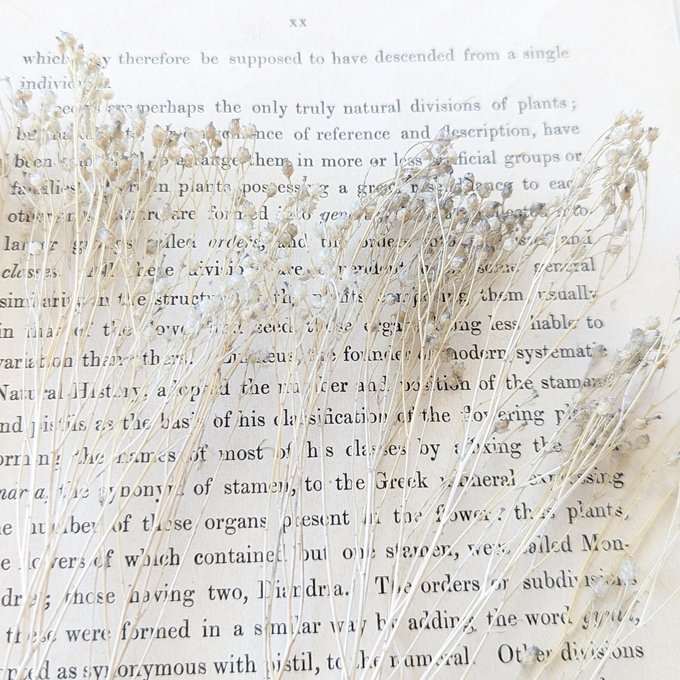 xx
which may therefore be supposed to have descended from a single
individual.
Species are perhaps the only truly natural divisions of plants;
but to convenience of reference and description, have
been to arrange them in more or less artificial groups or
families. Certain plants possessing a great resemblance to each
other in structure are formed into genera, are repeated into
larger groups called orders, and the orders into classes and
classes. All these divisions are dependent by some general
similarity in the structure of the plants composing them usually
in that of the flower and seed, those organs being less liable to
variation than others. Linnæus, the founder of modern systematic
Natural History, adopted the number and position of the stamens
and pistils as the basis of his classification of the flowering plants,
forming the names of most of his classes by affixing the word
andria, the synonym of stamen, to the Greek numeral expressing
the number of these organs present in the flower: thus plants,
the flowers of which contained but one stamen, were called Mon-
andria; those having two, Diandria. The orders or subdivisions
of these were formed in a similar way by adding the word gynia,
adopted as synonymous with pistil, to the numeral. Other divisions